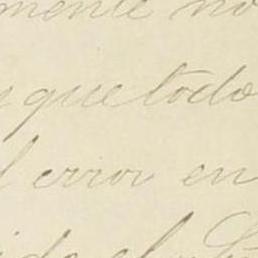 mente no
que todo
error en
el